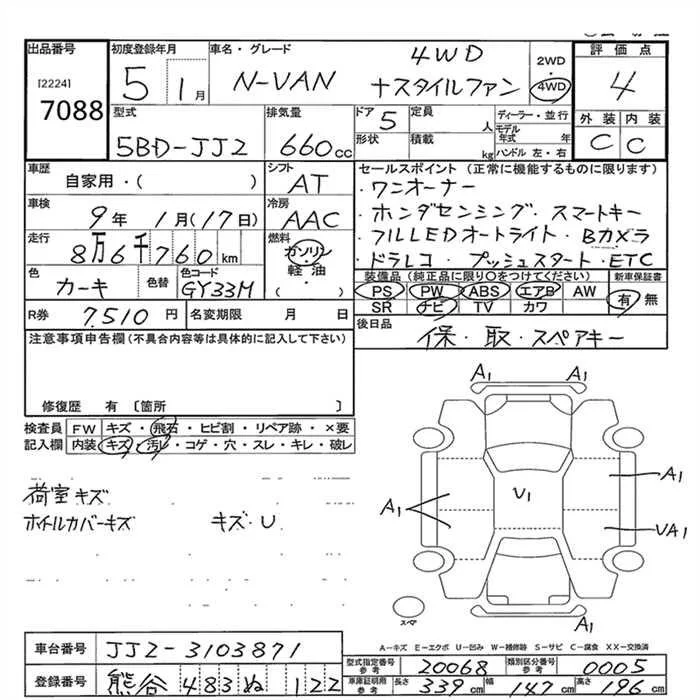 出品番号
[2224]
7088
初度登録年月
5 1月
車名・グレード
4WD
N-VAN +スタイルファン
2WD
4WD
評価点
4
外装 内装
C C
型式
5BD-JJ2
排気量
660cc
ドア 5
定員 人
形状
積載 kg
ディーラー・並行
モデル年式 年
ハンドル 左・右
車歴
自家用・( )
シフト
AT
車検
9年 1月(17日)
冷房
AAC
走行
8万6千760km
燃料
ガソリン
軽油
( )
色
カーキ
色替
色コード
GY33M
セールスポイント (正常に機能するものに限ります)
・ワンオーナー
・ホンダセンシング・スマートキー
・フルLEDオートライト・Bカメラ
・ドラレコ・プッシュスタート・ETC
装備品 (純正品に限り〇をつけてください)
PS PW ABS エアB AW
SR ナビ TV カワ
新車保証書
有 無
R券 7,510円
名変期限 月 日
後日品
保・取・スペアキー
注意事項申告欄(不具合内容等は具体的に記入して下さい)
修復歴 有 〔箇所 〕
検査員記入欄
FW キズ・飛石・ヒビ割・リペア跡・×要
内装 キズ・汚レ・コゲ・穴・スレ・キレ・破レ
荷室キズ
ホイルカバーキズ キズ・U
A1 A1
A1 U1 A1
UA1
A1
スペア
A-キズ E-エクボ U-凹み W-補修跡 S-サビ C-腐食 XX-交換済
車台番号 JJ2-3103871
登録番号 熊谷 483 ぬ 122
型式指定番号 参考 20068
類別区分番号 参考 0005
車庫証明用 参考 長さ 339cm 幅 147cm 高さ 196cm